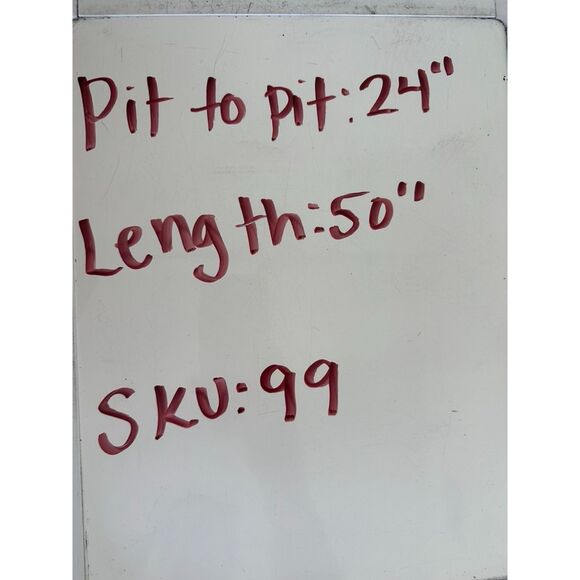 Pit to pit: 24"
Length: 50"
SKU: 99